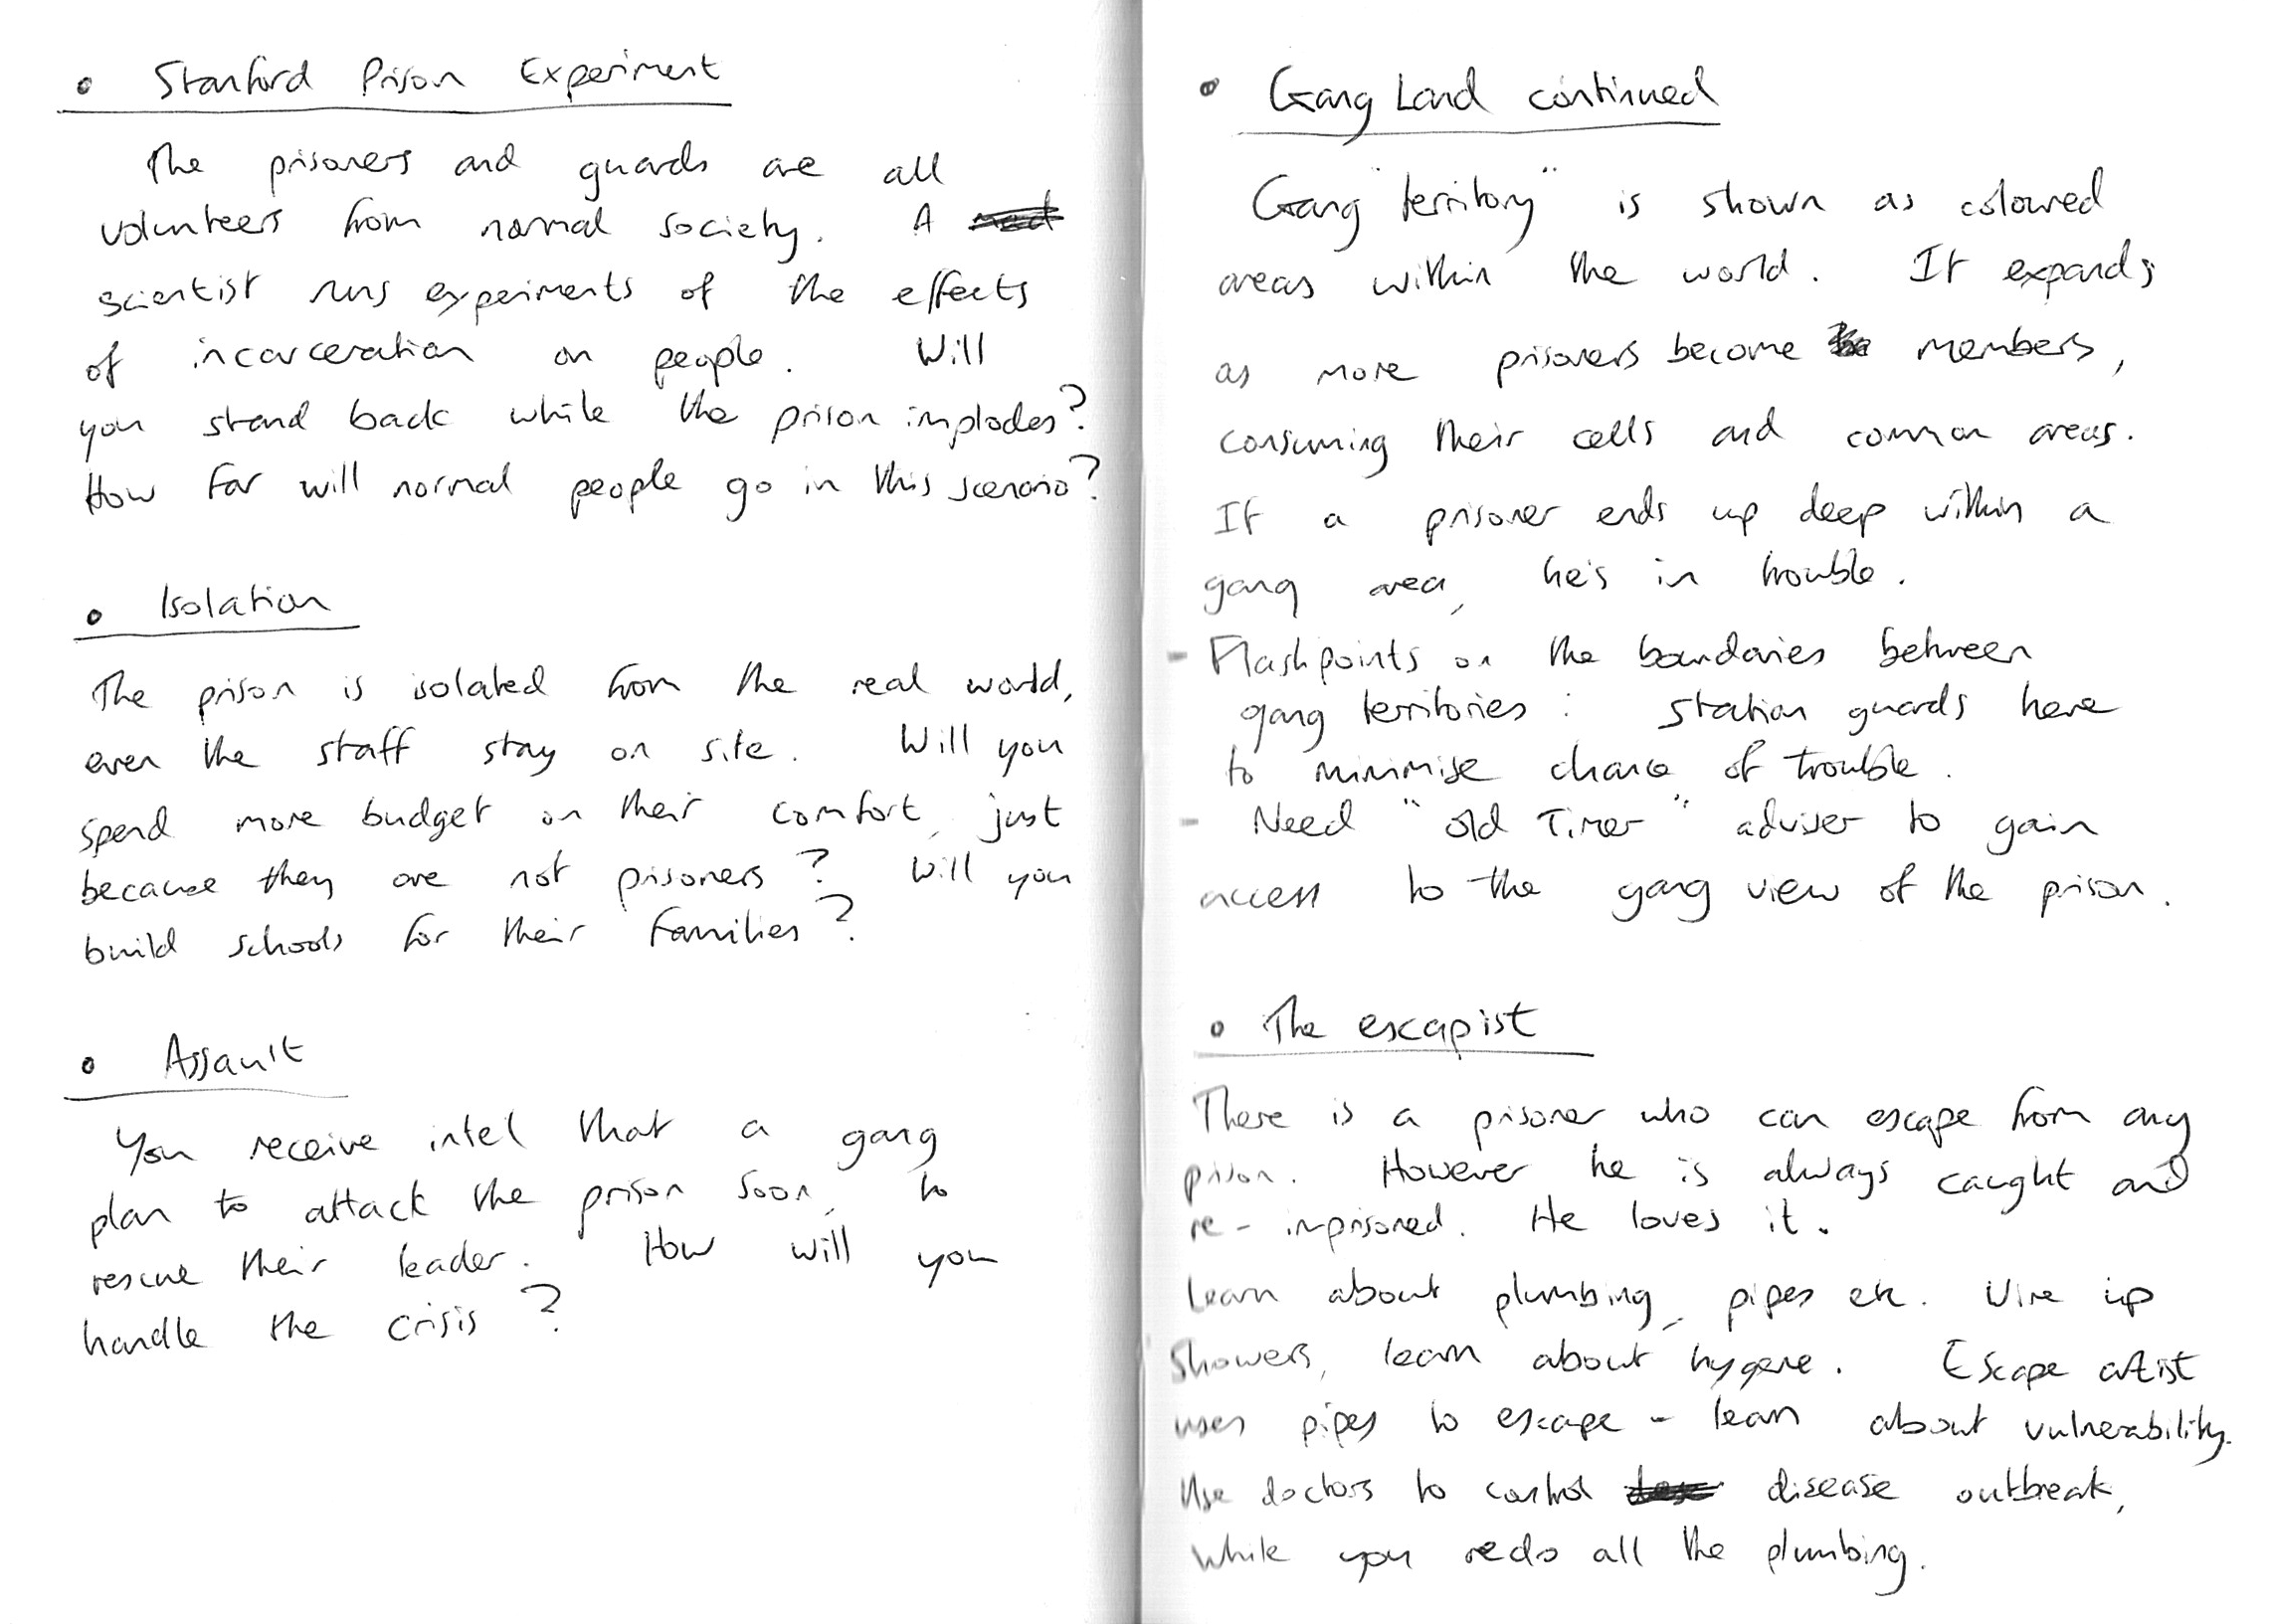 • Stanford Prison Experiment
The prisoners and guards are all
volunteers from normal society. A
scientist runs experiments of the effects
of incarceration on people. Will
you stand back while the prison implodes?
How far will normal people go in this scenario?
• Isolation
The prison is isolated from the real world,
even the staff stay on site. Will you
spend more budget on their comfort, just
because they are not prisoners? Will you
build schools for their families?
• Assault
You receive intel that a gang
plan to attack the prison soon, to
rescue their leader. How will you
handle the crisis?
• Gang Land continued
Gang "territory" is shown as coloured
areas within the world. It expands
as more prisoners become members,
consuming their cells and common areas.
If a prisoner ends up deep within a
gang area, he's in trouble.
- Flashpoints on the boundaries between
gang territories: Station guards here
to minimise chance of trouble.
- Need "old Timer" adviser to gain
access to the gang view of the prison.
• The escapist
There is a prisoner who can escape from any
prison. However he is always caught and
re-imprisoned. He loves it.
Learn about plumbing, pipes etc. Wire up
showers, learn about hygene. Escape artist
uses pipes to escape - learn about vulnerability.
Use doctors to control disease outbreak,
while you redo all the plumbing.